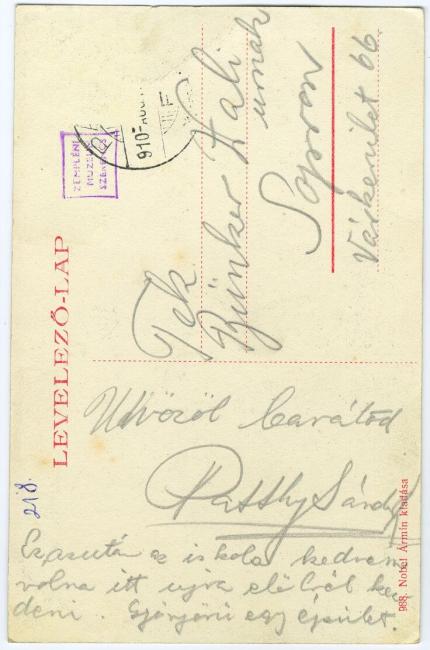 LEVELEZŐ-LAP
ZEMPLÉNI
MÚZEUM
SZERENCS
910
Tek
Bünker Dali
urnak
Sopron
Várkerület 66
Üdvözöl barátod
Sándor
Ezután az iskola kedvem
volna itt ujra előlről
deni. Gyönyörű egy épület.
218.
968. Nobel Ármin kiadása